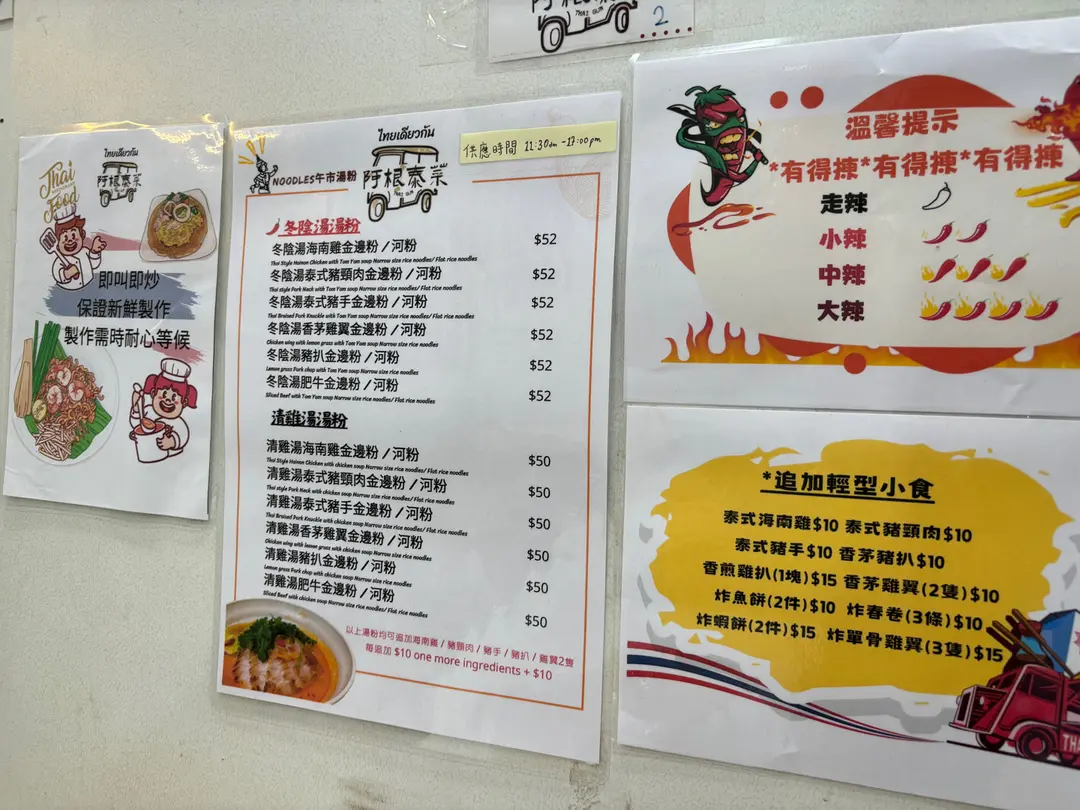 2
Thai
Food
ไทยเดียวกัน
阿根泰菜
即叫即炒
保證新鮮製作
製作需時耐心等候
ไทยเดียวกัน
NOODLES午市湯粉
阿根泰菜
供應時間 11:30am-17:00pm
冬陰湯湯粉
冬陰湯海南雞金邊粉／河粉 $52
Thai Style Hainan Chicken with Tom Yum soup Narrow size rice noodles/ Flat rice noodles
冬陰湯泰式豬頸肉金邊粉／河粉 $52
Thai style Pork Neck with Tom Yum soup Narrow size rice noodles/ Flat rice noodles
冬陰湯泰式豬手金邊粉／河粉 $52
Thai Braised Pork Knuckle with Tom Yum soup Narrow size rice noodles/ Flat rice noodles
冬陰湯香茅雞翼金邊粉／河粉 $52
Chicken wing with lemon grass with Tom Yum soup Narrow size rice noodles
冬陰湯豬扒金邊粉／河粉 $52
Lemon grass Pork chop with Tom Yum soup Narrow size rice noodles/ Flat rice noodles
冬陰湯肥牛金邊粉／河粉 $52
Sliced Beef with Tom Yum soup Narrow size rice noodles/ Flat rice noodles
清雞湯湯粉
清雞湯海南雞金邊粉／河粉 $50
Thai Style Hainan Chicken with chicken soup Narrow size rice noodles/ Flat rice noodles
清雞湯泰式豬頸肉金邊粉／河粉 $50
Thai style Pork Neck with chicken soup Narrow size rice noodles/ Flat rice noodles
清雞湯泰式豬手金邊粉／河粉 $50
Thai Braised Pork Knuckle with chicken soup Narrow size rice noodles/ Flat rice noodles
清雞湯香茅雞翼金邊粉／河粉 $50
Chicken wing with lemon grass with chicken soup Narrow size rice noodles
清雞湯豬扒金邊粉／河粉 $50
Lemon grass Pork chop with chicken soup Narrow size rice noodles/ Flat rice noodles
清雞湯肥牛金邊粉／河粉 $50
Sliced Beef with chicken soup Narrow size rice noodles/ Flat rice noodles
以上湯粉均可追加海南雞 / 豬頸肉 / 豬手 / 豬扒 / 雞翼2隻
每追加 $10 one more ingredients + $10
溫馨提示
*有得揀*有得揀*有得揀
走辣
小辣
中辣
大辣
*追加輕型小食
泰式海南雞$10 泰式豬頸肉$10
泰式豬手$10 香茅豬扒$10
香煎雞扒(1塊)$15 香茅雞翼(2隻)$10
炸魚餅(2件)$10 炸春卷(3條)$10
炸蝦餅(2件)$15 炸單骨雞翼(3隻)$15